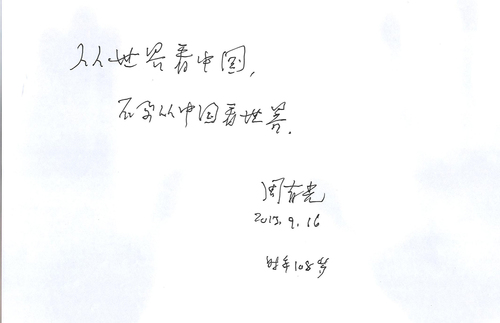 从世界看中国,
不要从中国看世界.
周有光
2013.9.16
时年108岁